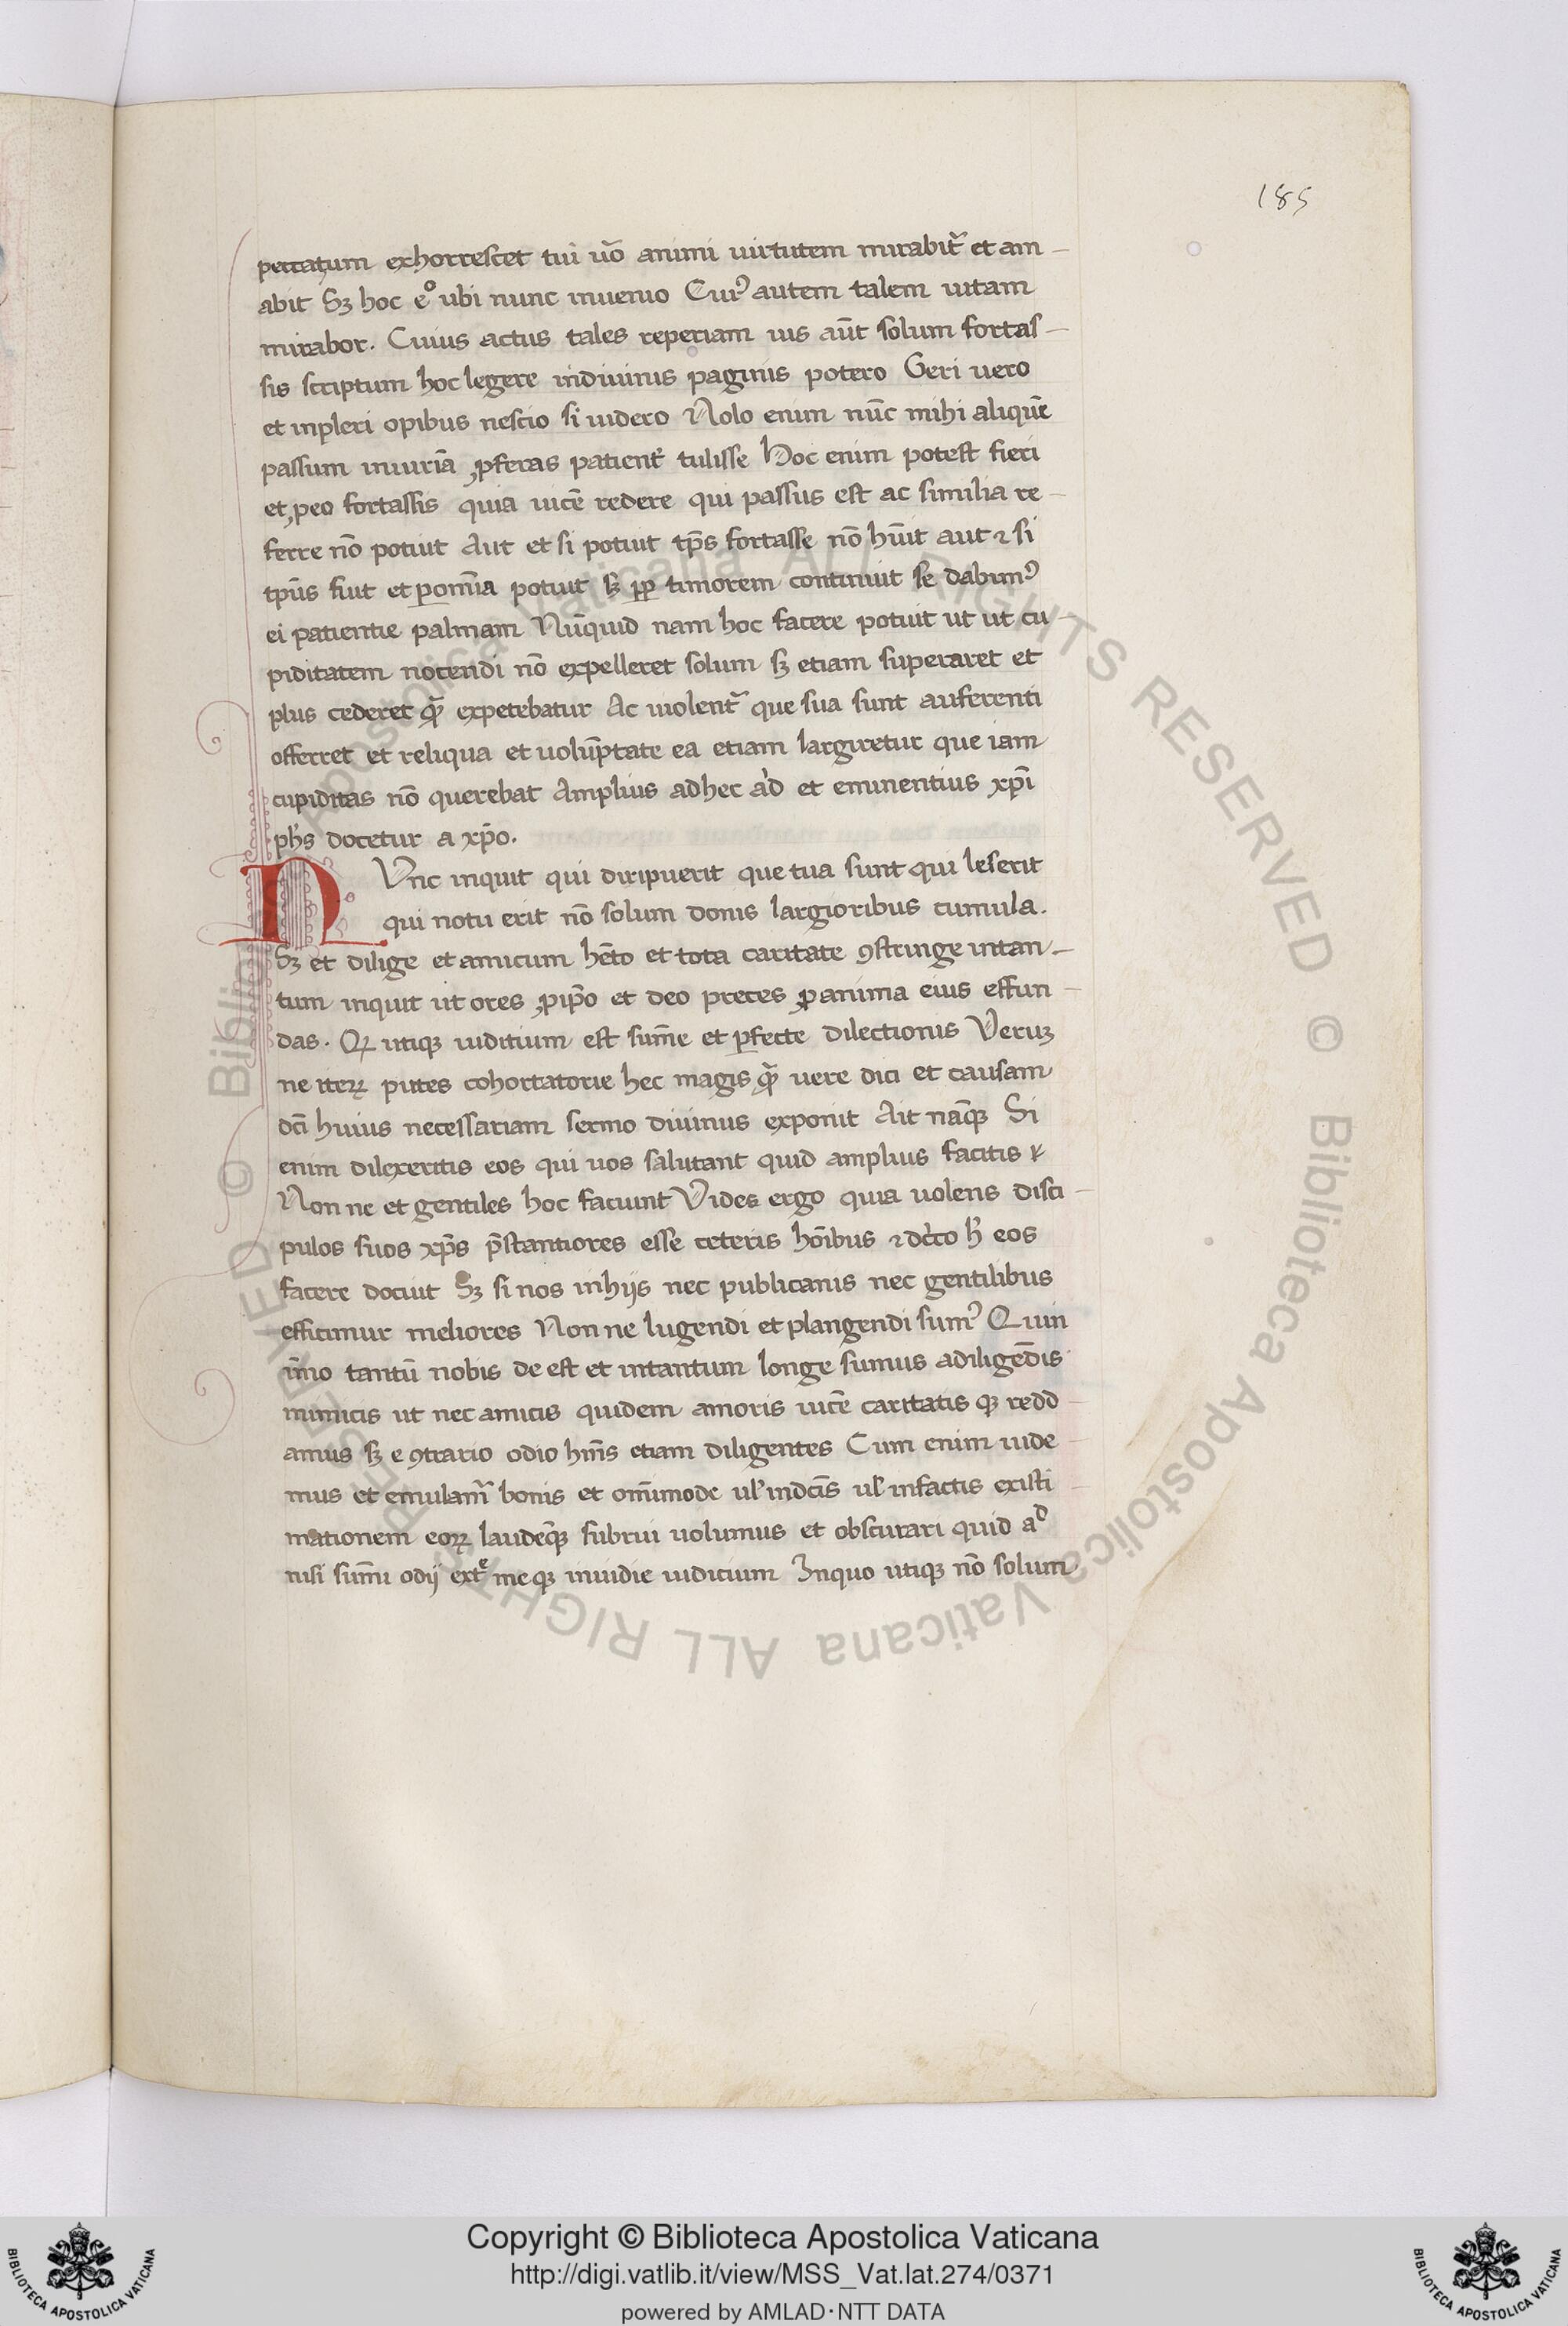 185
peccatum exhorrescet tui ūo animi uirtutem mirabit᷑ et am-
abit Sꝫ hoc eͦ ubi nunc inuenio Cuiꝰ autem talem uitam
mirabor. Cuius actus tales reperiam ius aūt solum fortas-
sis scriptum hoc legere indiuinis paginis potero Geri uero
et inpleri opibus nescio si uidero Nolo enim nūc mihi aliquē
passum iniuriā ꝓferas patient᷑ tulisse Hoc enim potest fieri
et ꝓeo fortassis quia uicē redere qui passus est ac similia re-
ferre nō potuit Aut et si potuit tp̄s fortasse nō hūit aut ⁊ si
tpūs fuit et ꝑomīa potuit sꝫ ꝓp timorem continuit se dabimꝰ
ei patientie palmam Nūquid nam hoc facere potuit ut ut cu-
piditatem nocendi nō expelleret solum sꝫ etiam superaret et
plus cederet q̄ȝ expetebatur Ac uiolent᷑ que sua sunt auferenti
offerret et reliqua et uolūptate ea etiam largiretur que iam
cupiditas nō querebat Amplius adhec a'd et eminentius xp̄i
ph̄s docetur a xp̄o.
N Vnc inquit qui diripuerit que tua sunt qui leserit
qui notu erit nō solum donis largioribus cumula.
Sꝫ et dilige et amicum hēto et tota caritate ꝯstringe intan-
tum inquit ut ores ꝓip̄o et deo preces ꝓanima eius effun-
das. Qꝫ utiqꝫ iuditium est sum̄e et ꝑfecte dilectionis Veruꝫ
ne iterꝝ putes cohortatorie hec magis q̄ȝ uere dici et causam
dc̄i huius necessariam sermo diuinus exponit Ait nāqꝫ Si
enim dilexeritis eos qui uos salutant quid amplius facitis ?
Non ne et gentiles hoc faciunt Vides ergo quia uolens disci-
pulos suos xp̄s p̄stantiores esse ceteris hōibus ⁊ dc̄to h̄ eos
facere docuit Sꝫ si nos inhijs nec publicanis nec gentilibus
efficimur meliores Non ne lugendi et plangendi sumꝰ Quin
īmo tantū nobis de est et intantum longe sumus adiligēdis
inimicis ut nec amicis quidem amoris uicē caritatis qꝫ redd-
amus sꝫ e ꝯtrario odio hm̄s etiam diligentes Cum enim uide-
mus et emulam᷑ bonis et omīmode ul' indc̄is ul' infactis existi-
mationem eoꝝ laudēqꝫ subrui uolumus et obscurari quid aᵈ
nisi sum̄i odij extͤ me qꝫ inuidie iudicium Inquo utiqꝫ nō solum
Copyright © Biblioteca Apostolica Vaticana
http://digi.vatlib.it/view/MSS_Vat.lat.274/0371
powered by AMLAD·NTT DATA